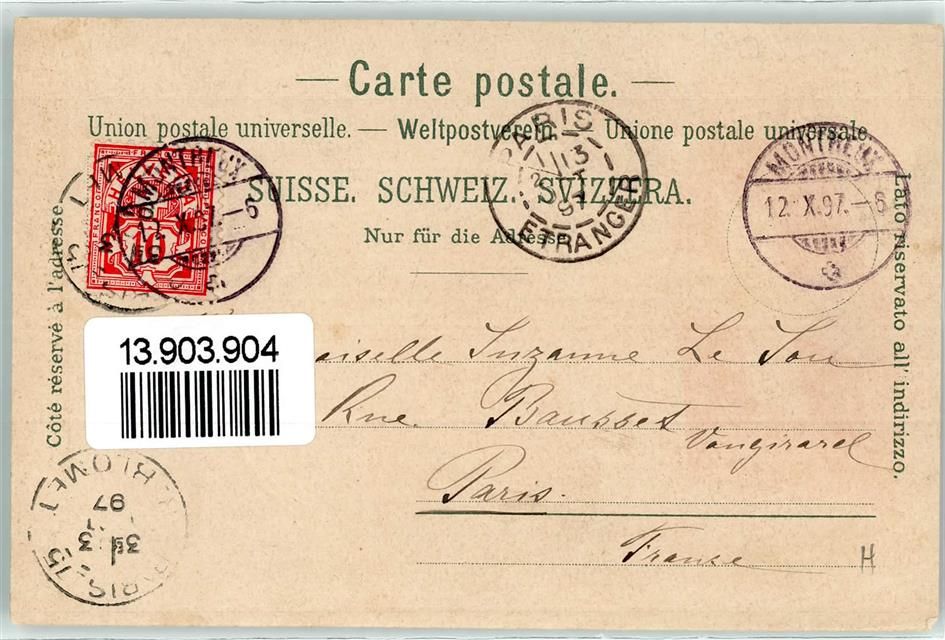 Carte postale.
Union postale universelle. — Weltpostverein. — Unione postale universale.
SUISSE. SCHWEIZ. SVIZZERA.
Nur für die Adresse.
Côté réservé à l'adresse
Lato riservato all' indirizzo.
PARIS
13
ETRANGER
MONTREUX
12. X.97.-6
MONTREUX
X.97.-6
HELVETIA
FRANCO
10
13.903.904
oiselle Suzanne Le Sou
Rue Bausset
Vaugirard
Paris.
Franse
H
PARIS-15
R. BLOMET
3E
13
97